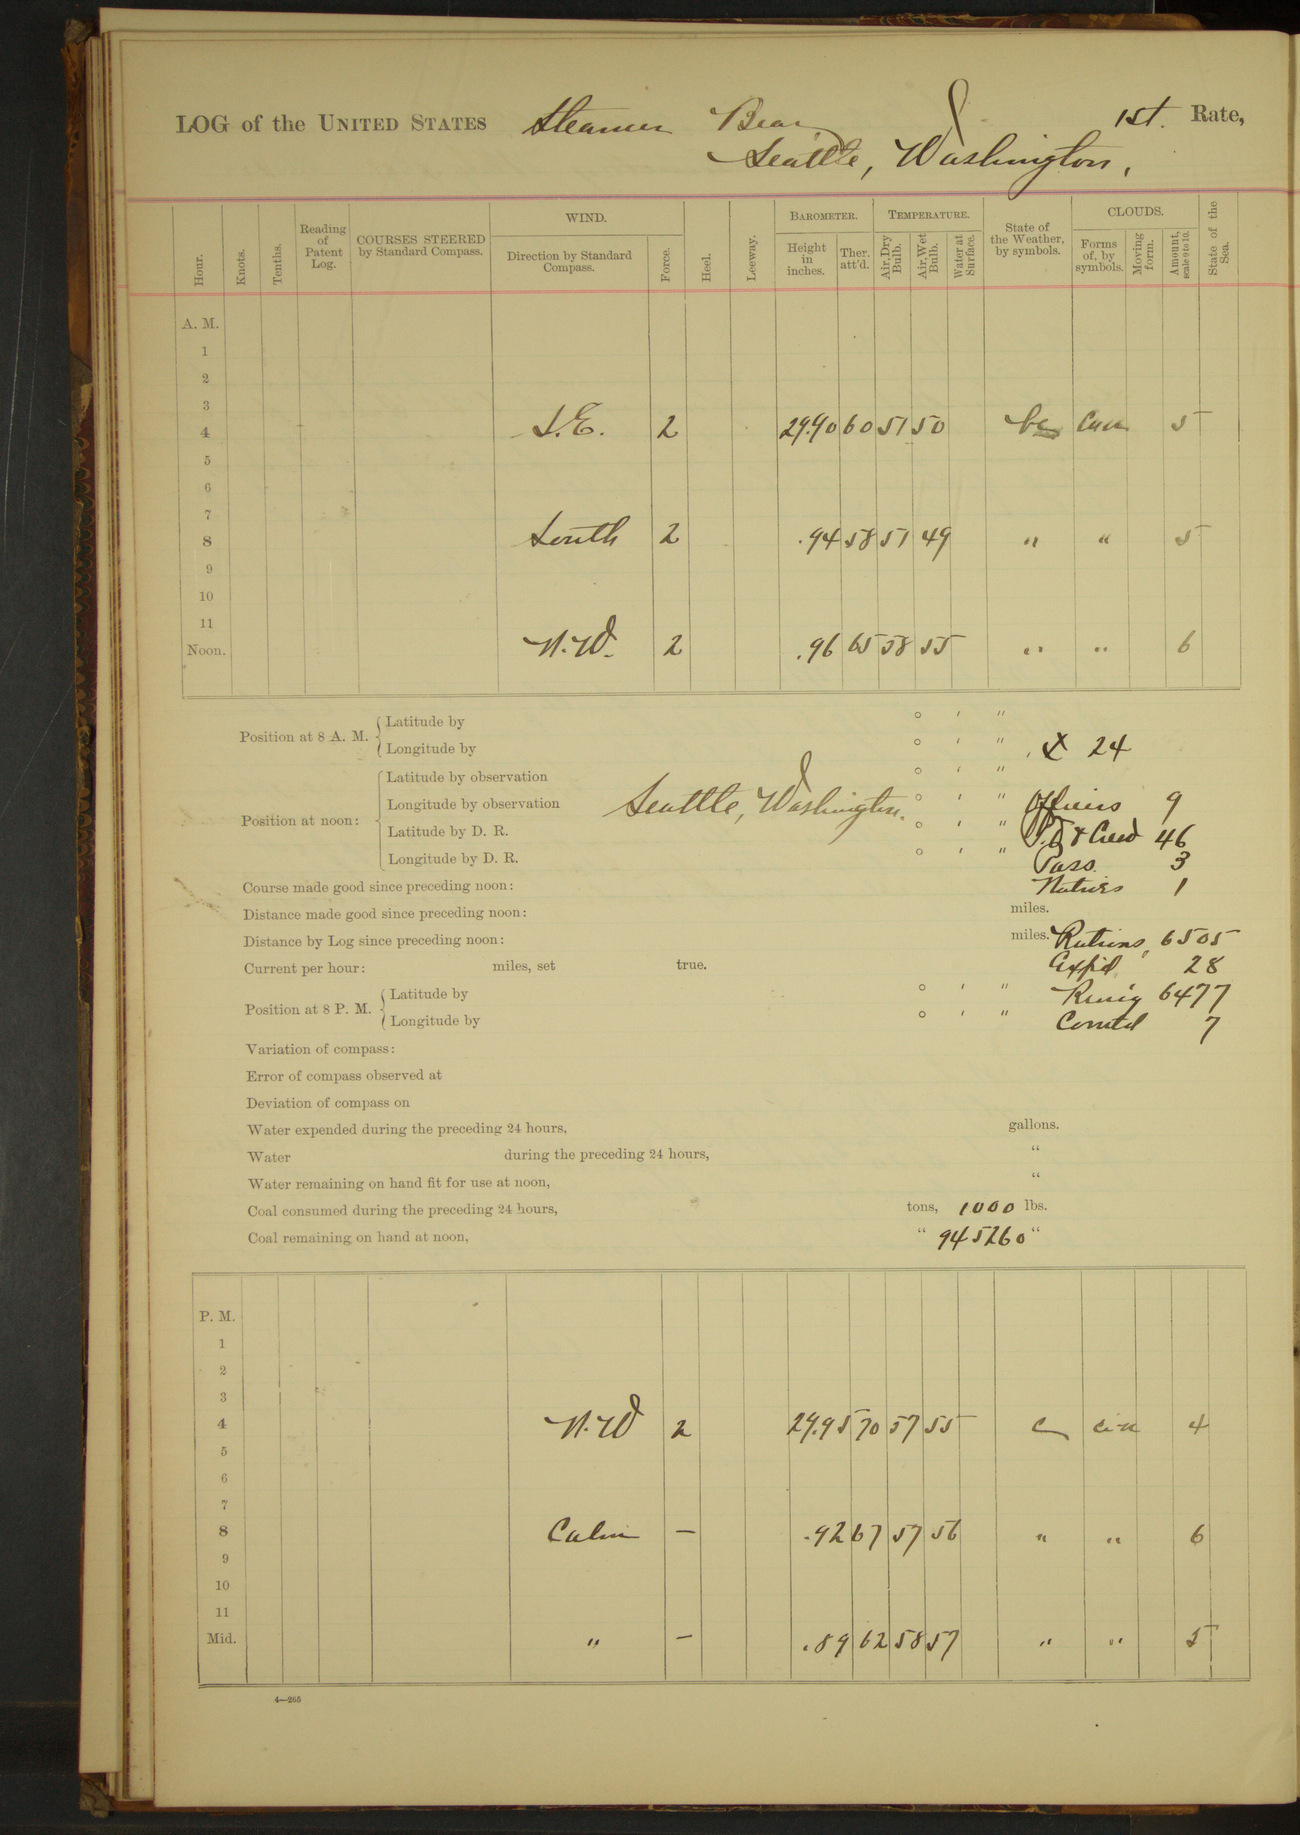 LOG of the UNITED STATES Steamer Bear 1st. Rate,
Seattle, Washington,
Hour. Knots. Tenths. Reading of Patent Log. COURSES STEERED by Standard Compass. WIND. Direction by Standard Compass. Force. Heel. Leeway. BAROMETER. Height in inches. Ther. att'd. TEMPERATURE. Air, Dry Bulb. Air, Wet Bulb. Water at Surface. State of the Weather, by symbols. CLOUDS. Forms of, by symbols. Moving form. Amount, scale 0 to 10. State of the Sea.
A. M.
1
2
3
4 S.E. 2 29.90 60 51 50 bc 5
5
6
7
8 South 2 .94 58 51 49 " " 5
9
10
11
Noon. N.W. 2 .96 65 58 55 " " 6
Position at 8 A. M. { Latitude by ° ' "
Longitude by ° ' " 24
Position at noon: { Latitude by observation ° ' "
Longitude by observation Seattle, Washington. ° ' " Officers 9
Latitude by D. R. ° ' " & Crew 46
Longitude by D. R. ° ' " Pass. 3
Course made good since preceding noon: Natives 1
Distance made good since preceding noon: miles.
Distance by Log since preceding noon: miles. Rations 6505
Current per hour: miles, set true. Expd. 28
Position at 8 P. M. { Latitude by ° ' " 6477
Longitude by ° ' " Comtd 7
Variation of compass:
Error of compass observed at
Deviation of compass on
Water expended during the preceding 24 hours, gallons.
Water during the preceding 24 hours, "
Water remaining on hand fit for use at noon, "
Coal consumed during the preceding 24 hours, tons, 1000 lbs.
Coal remaining on hand at noon, " 945260 "
P. M.
1
2
3
4 N.W 2 29.95 70 57 55 c 4
5
6
7
8 Calm — .92 67 57 56 " " 6
9
10
11
Mid. " — .89 62 58 57 " " 5
4—265